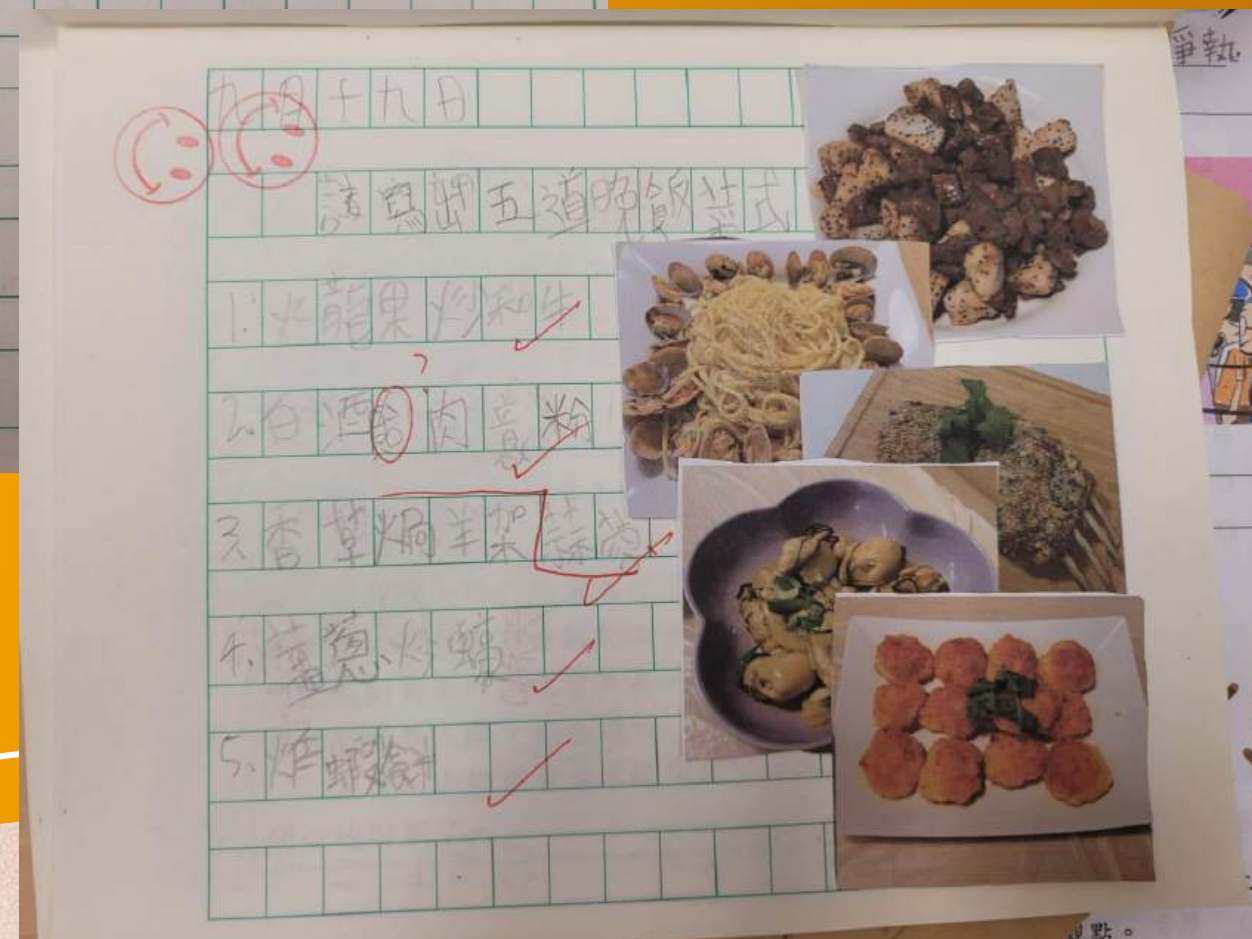 九月十九日
請寫出五道晚飯菜式
1. 火龍果炒和牛
2. 白酒蛤肉意粉
?
3. 香草焗羊架蒜蓉
4. 薑蔥炒蠔
5. 炸蝦餅
爭執
觀點。